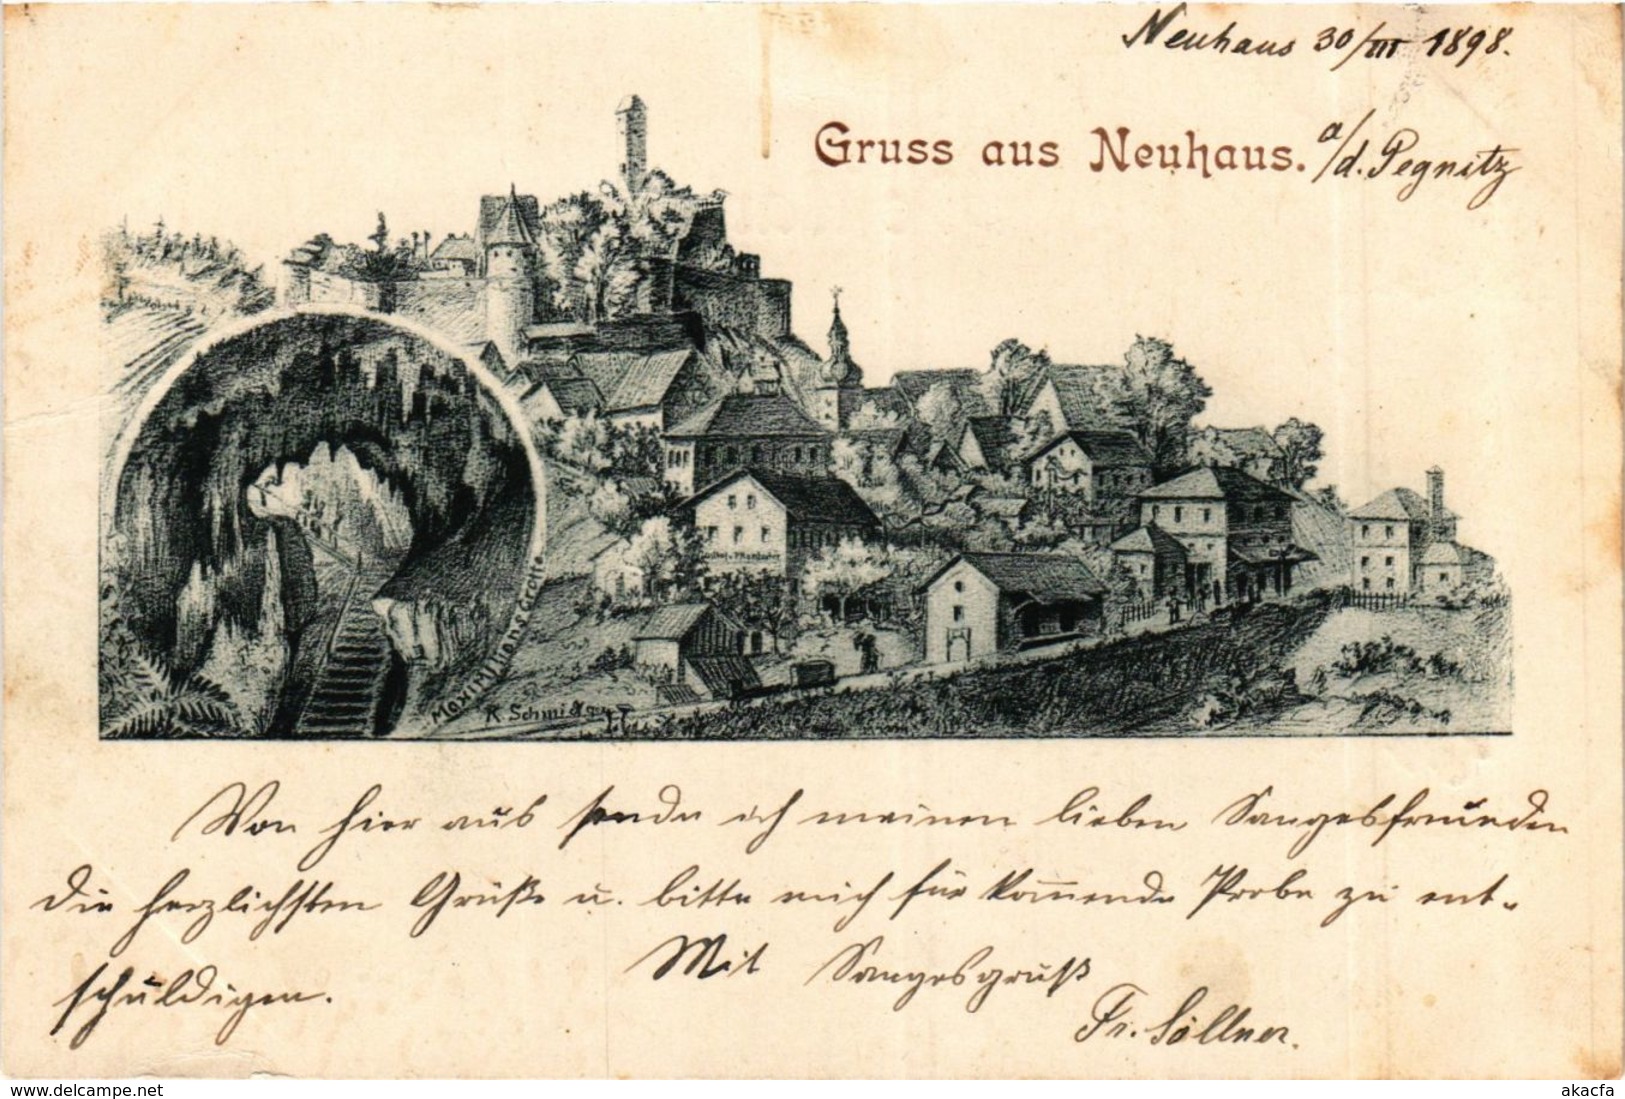 Neuhaus 30/III 1898.
Gruss aus Neuhaus. a/d. Pegnitz
Maximilians Grotte
K Schmidt
Von hier aus sende ich meinen lieben Sangesfreunden
die herzlichsten Grüße u. bitte mich für kom̅ende Probe zu ent-
schuldigen.
Mit Sangesgruß
Fr. Söllner.
www.delcampe.net
akacfa